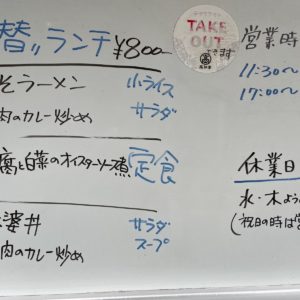 替〃ランチ ¥800
そラーメン 小ライス
肉のカレー炒め サラダ
腐と白菜のオイスターソース煮 定食
婆丼 サラダ
肉のカレー炒め スープ
TAKE OUT
できます
営業時
11:30〜
17:00〜
休業日
水・木よう
(祝日の時は営